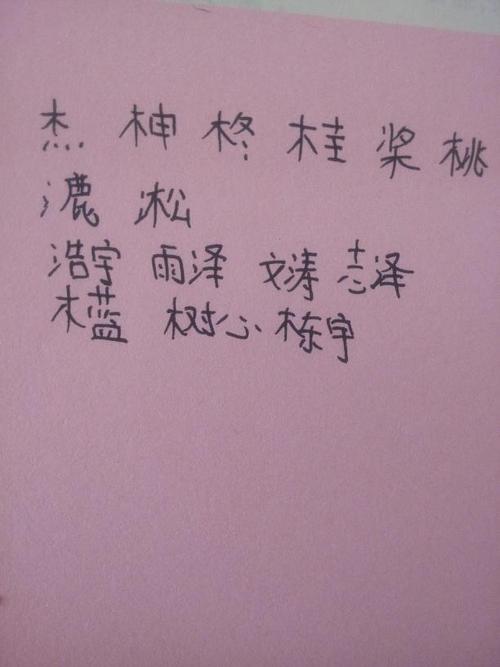 杰 柛 柊 桂 桨 桃
漉 凇
浩宇 雨泽 文涛 志泽
木蓝 树心 栋宇